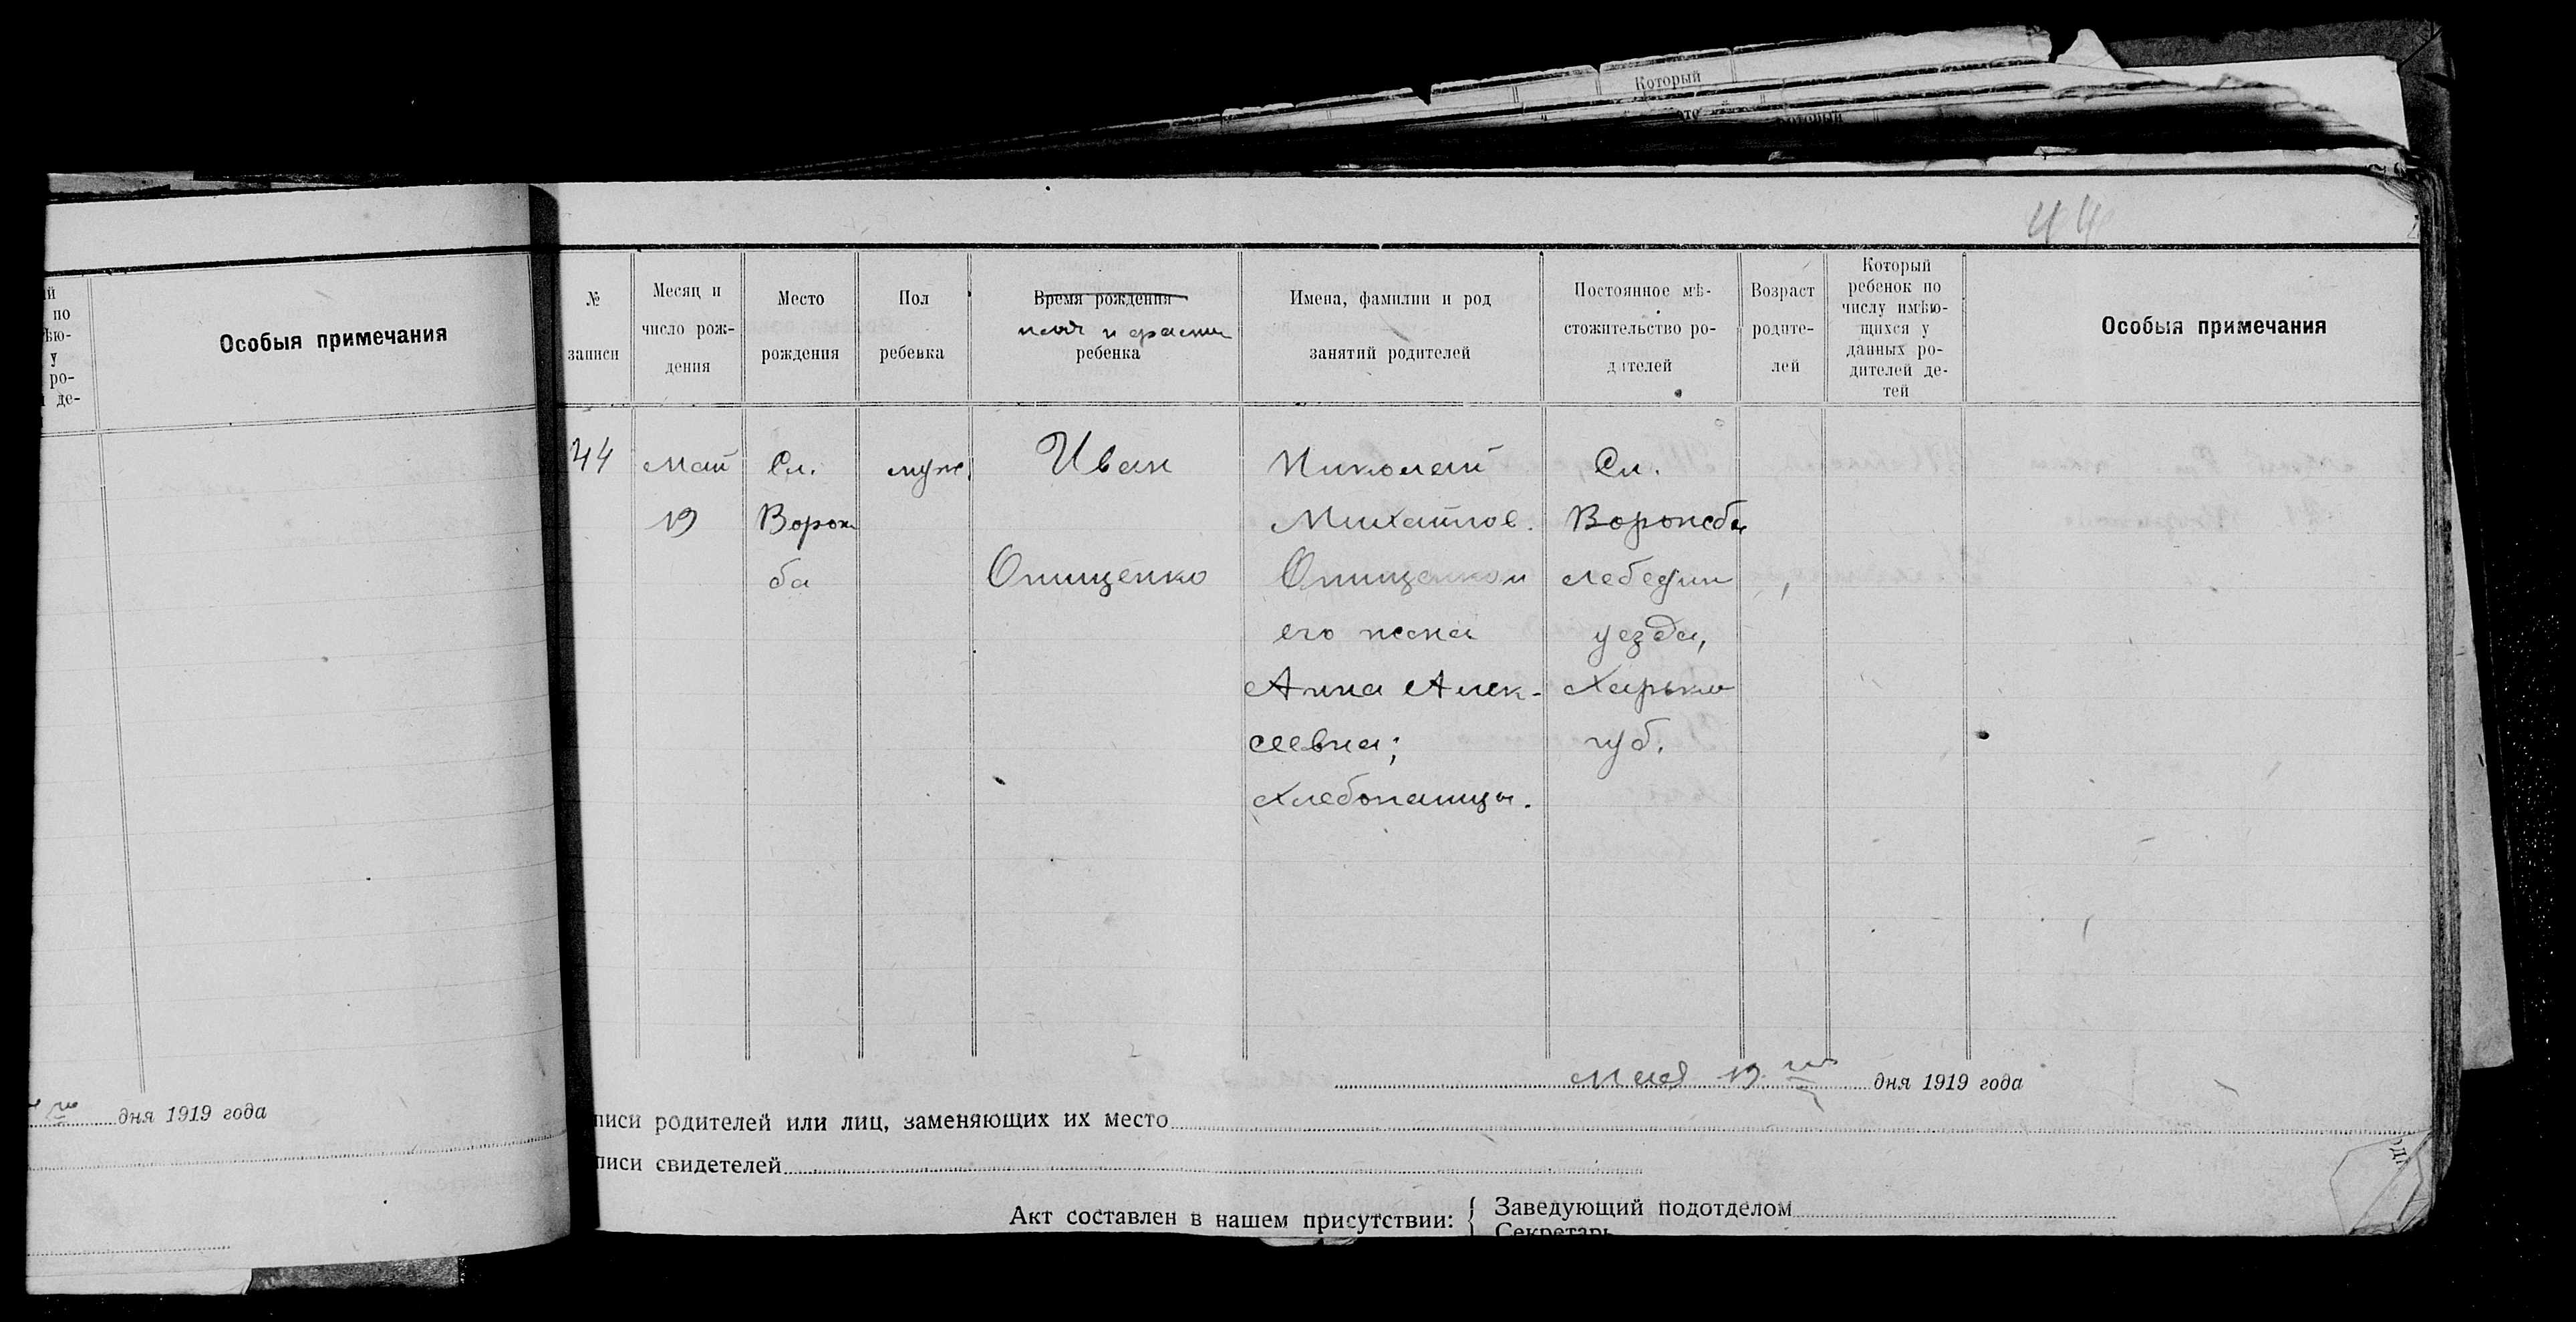 Который
44
й
по
ѣю-
у
ро-
де-
Особыя примечания
дня 1919 года
№
записи
Месяц и
число рож-
дения
Место
рождения
Пол
ребенка
Время рождения
ребенка
Имена, фамилии и род
занятий родителей
Постоянное мѣ-
стожительство ро-
дителей
Возраст
родите-
лей
Который
ребенок по
числу имѣю-
щихся у
данных ро-
дителей де-
тей
Особыя примечания
44
Май
19
Сл.
Ворож
ба
муж.
Иван
Онищенко
Николай
Михайлов.
Онищенко и
его жена
Анна Алек-
сеевна;
хлебопашцы.
Сл.
Ворожба
Лебедин
уезда,
Харьков
губ.
Мая 19 го дня 1919 года
писи родителей или лиц, заменяющих их место
писи свидетелей
Акт составлен в нашем присутствии:
Заведующий подотделом
Секретарь